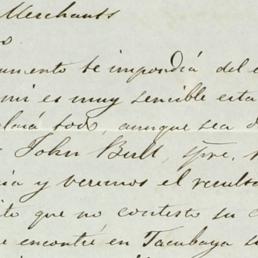 Merchants
o
umento te impondrá del e
mi es muy sencible esta
todo, aunque sea d
John Bull, spre.
ia y veremos el resulta
ito que no contesto su c
e encontré en Tacubaya su